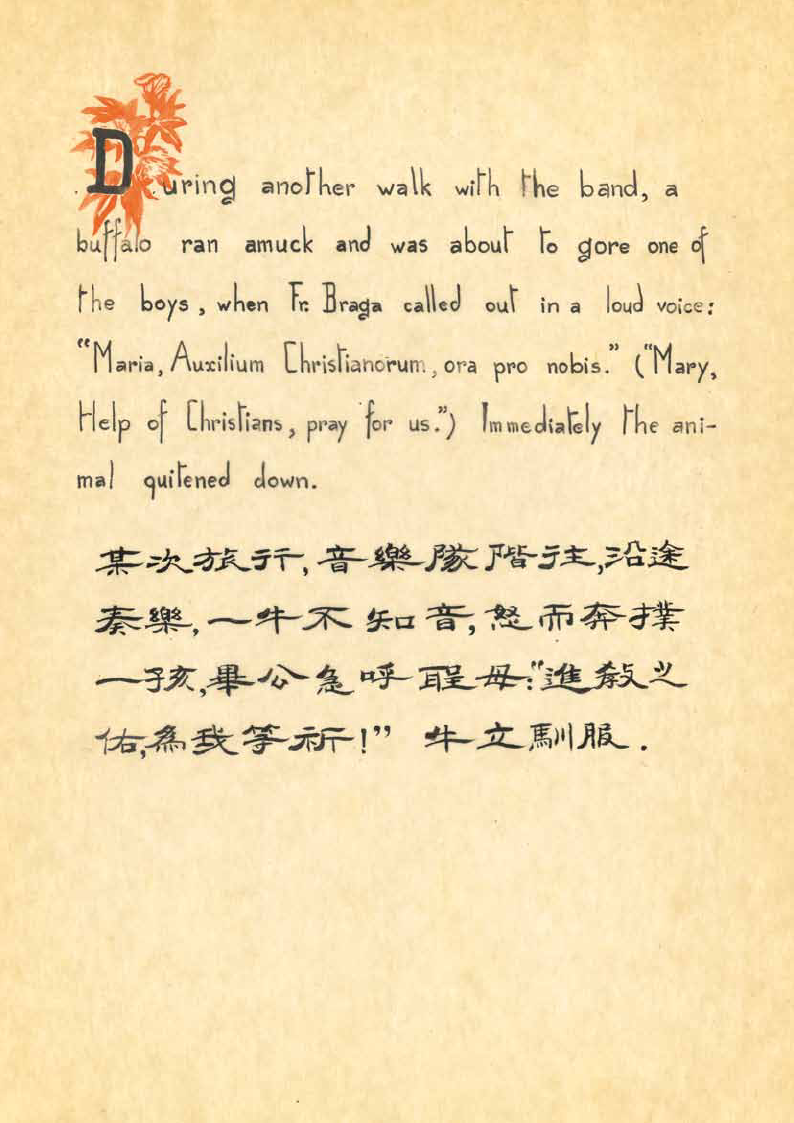 During another walk with the band, a
buffalo ran amuck and was about to gore one of
the boys, when Fr. Braga called out in a loud voice:
“Maria, Auxilium Christianorum, ora pro nobis.” (“Mary,
Help of Christians, pray for us.”) Immediately the ani-
mal quitened down.
某次旅行,音樂隊階往,沿途
奏樂,一牛不知音,怒而奔撲
一孩,畢公急呼聖母:“進教之
佑,為我等祈!” 牛立馴服.